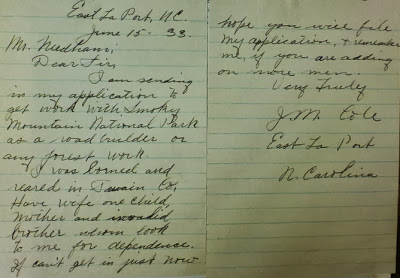 East La Port, N.C.
June 15 - 33.
Mr. Needham;
Dear Sir,
I am sending
in my application to
get work with Smoky
Mountain National Park
as a road builder or
any forest work.
I was borned and
reared in Swain Co,
Have wife one child,
Mother and invalid
brother whom look
to me for dependence.
If can't get in just now
hope you will file
my application, &
me, if you are adding
on more men.
Very Truly
J. M. Cole
East La Port
N. Carolina